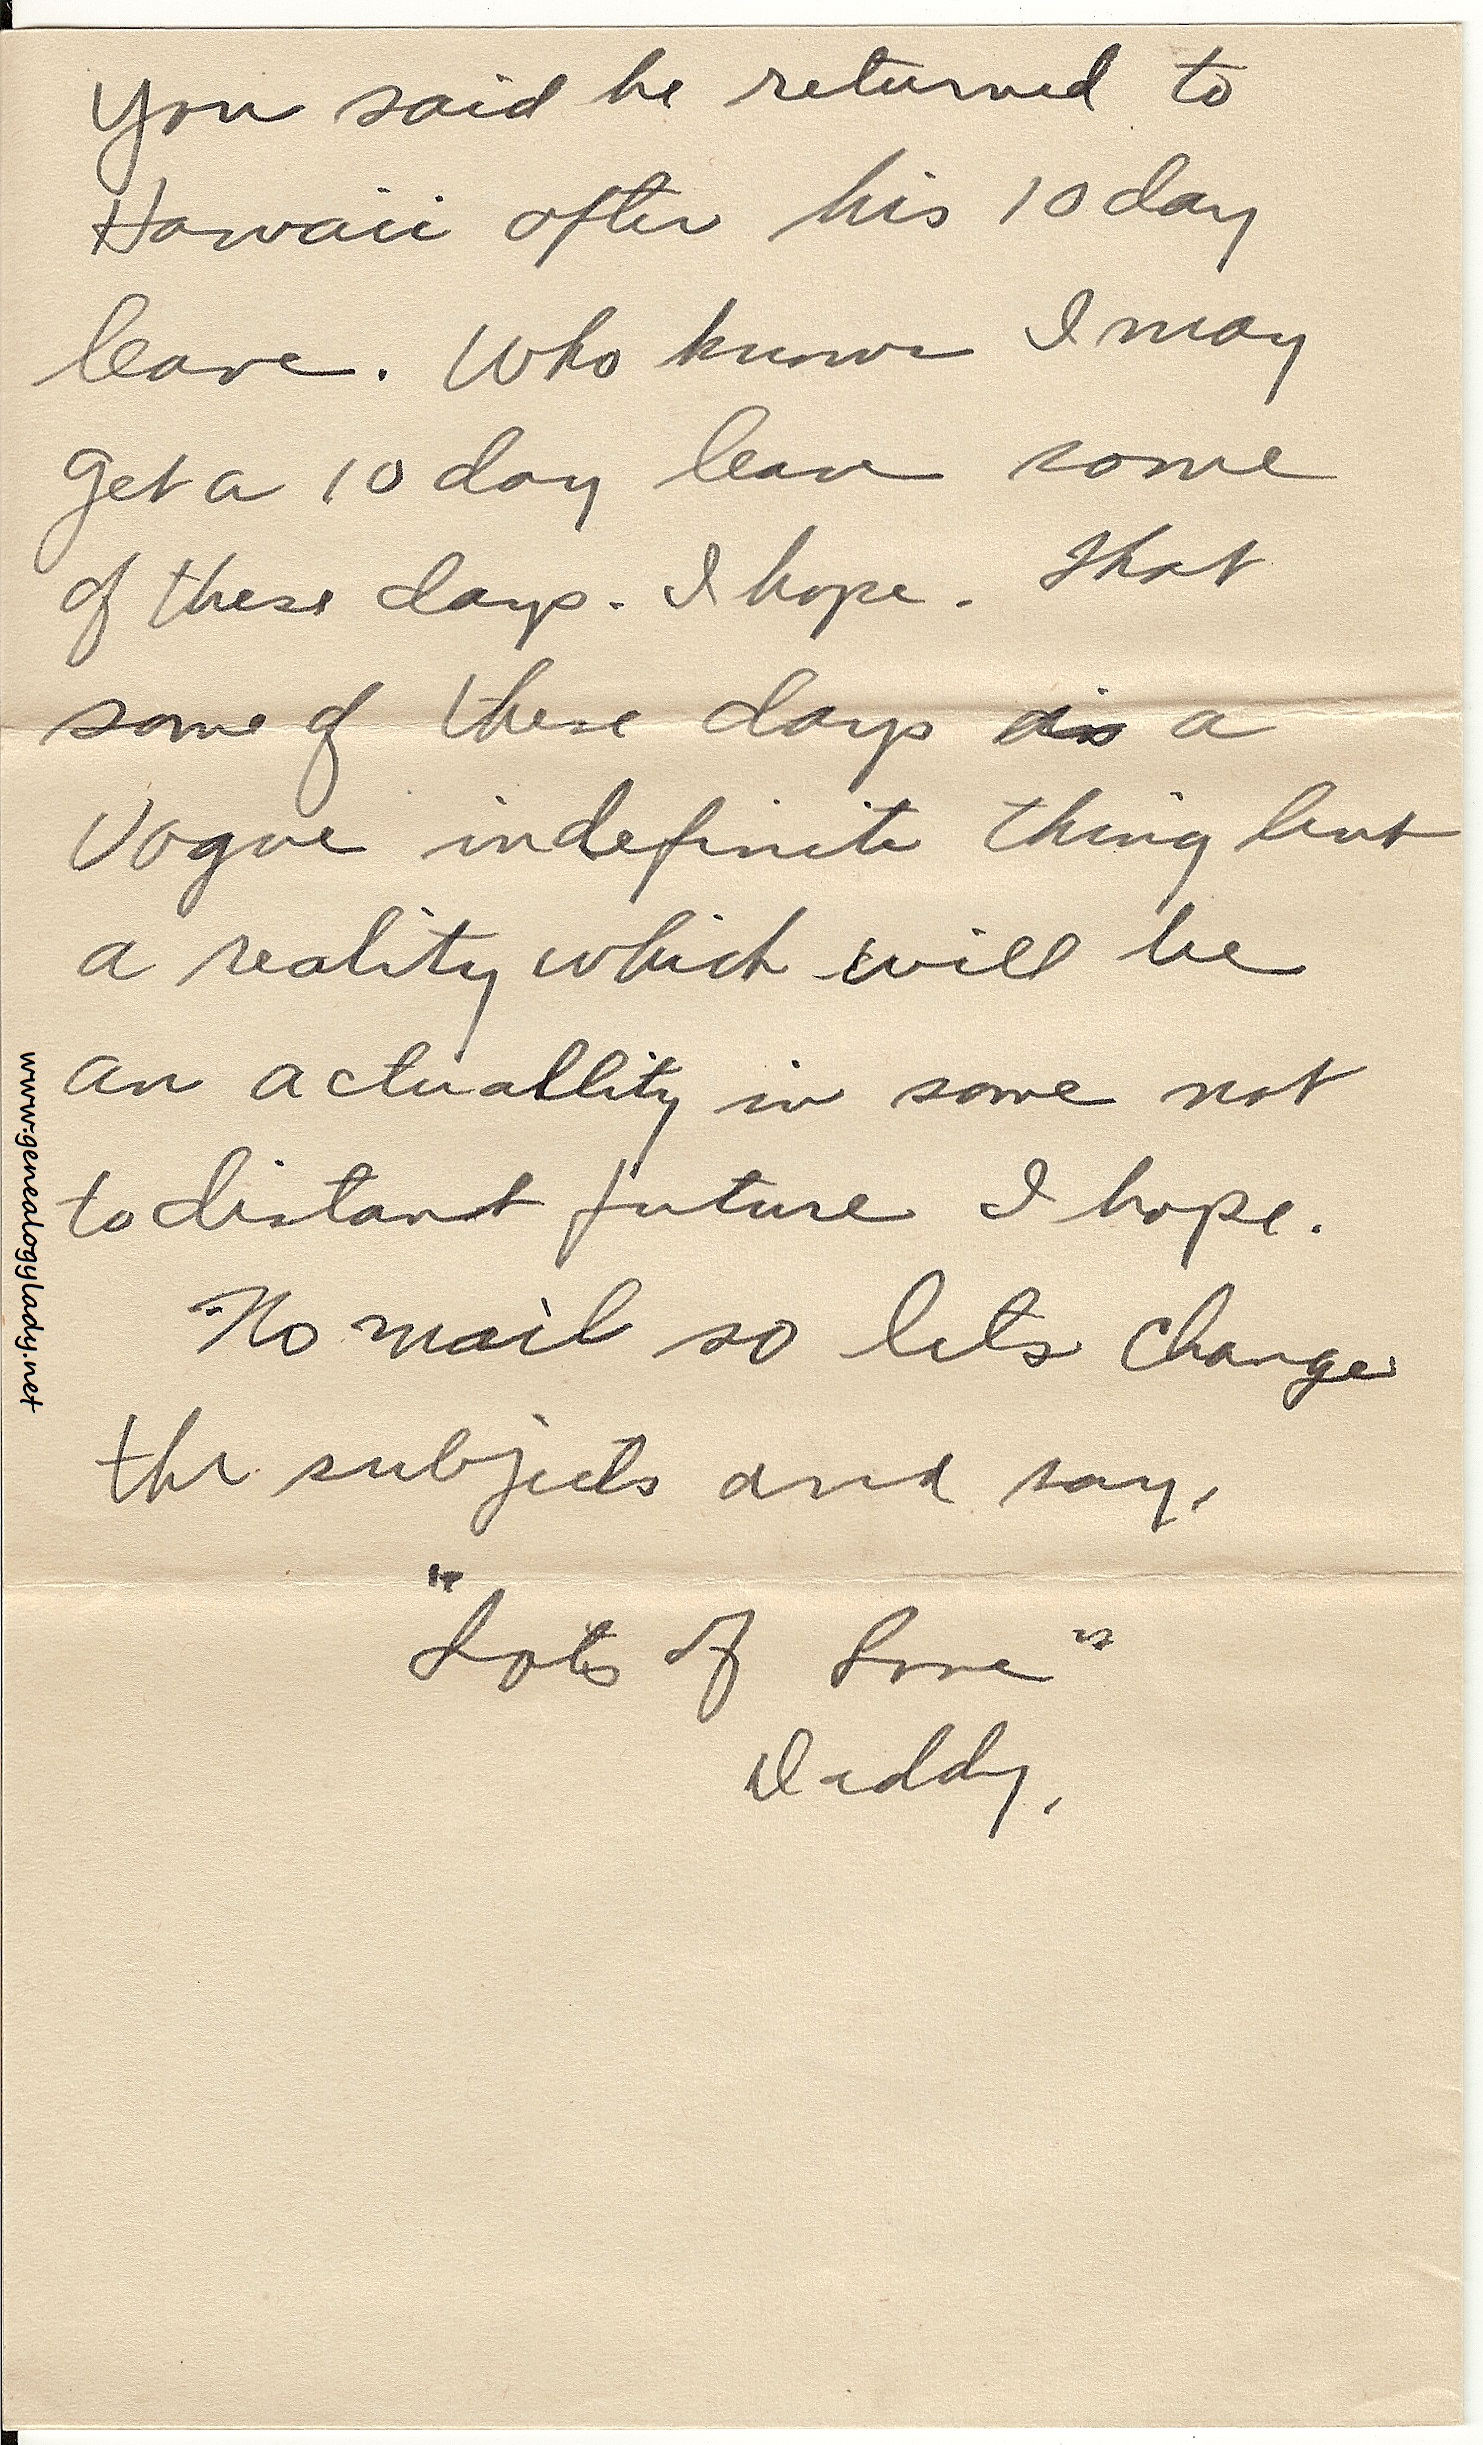 You said he returned to
Hawaii after his 10 day
leave. Who knows I may
get a 10 day leave some
of these days. I hope. That
some of these days is a
Vague indefinite thing but
a reality which will be
an actuallity in some not
to distant future I hope.
No mail so lets change
the subjects and say,
"Lots of Love"
Daddy,
www.genealogylady.net